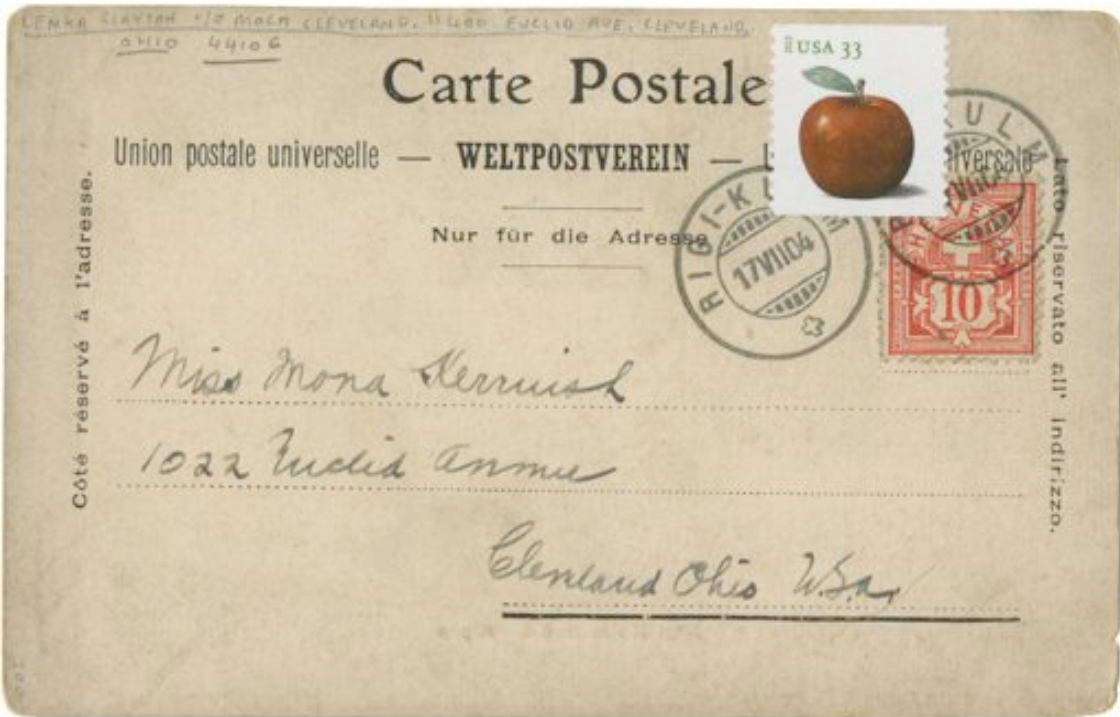 LENKA CLAYTON c/o MOCA CLEVELAND, 11400 EUCLID AVE, CLEVELAND,
OHIO 44106
Carte Postale
USA 33
Union postale universelle — WELTPOSTVEREIN —
Nur für die Adresse
RIGI-KULM
17VII04
KULM
HELVETIA
10
Côté réservé à l'adresse.
Lato riservato all' indirizzo.
Miss Mona Kermish
1022 Euclid Avenue
Cleveland Ohio U.S.A.